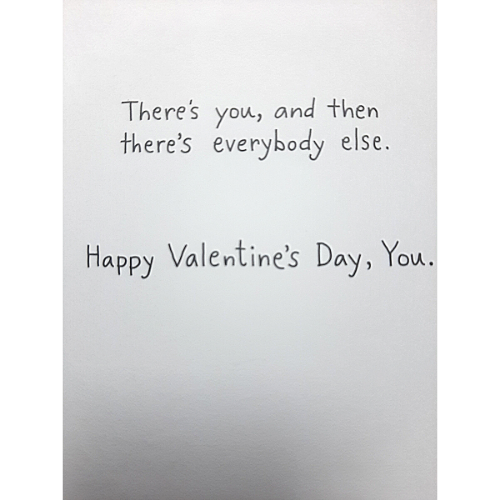 There's you, and then
there's everybody else.
Happy Valentine's Day, You.